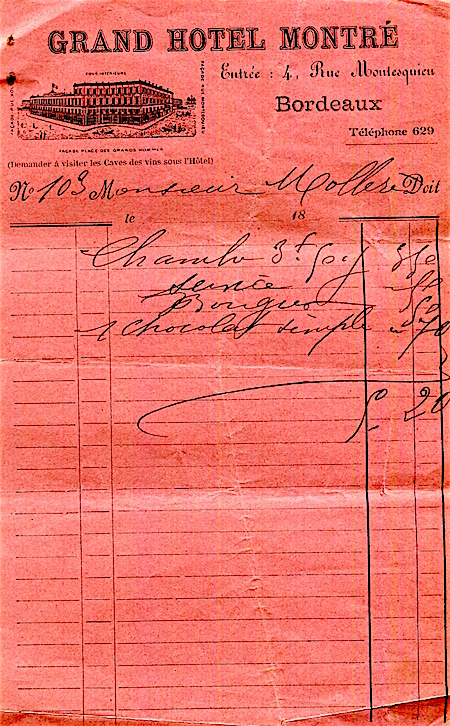 GRAND HOTEL MONTRÉ
COUR INTÉRIEURE
FAÇADE RUE MONTESQUIEU
FAÇADE PLACE DES GRANDS HOMMES
Entrée : 4, Rue Montesquieu
Bordeaux
Téléphone 629
(Demander à visiter les Caves des vins sous l'Hôtel)
No 103 Monsieur Doit
le 18
Chambre 3f 50
service
Bougies 50
1 chocolat simple 70
5 20